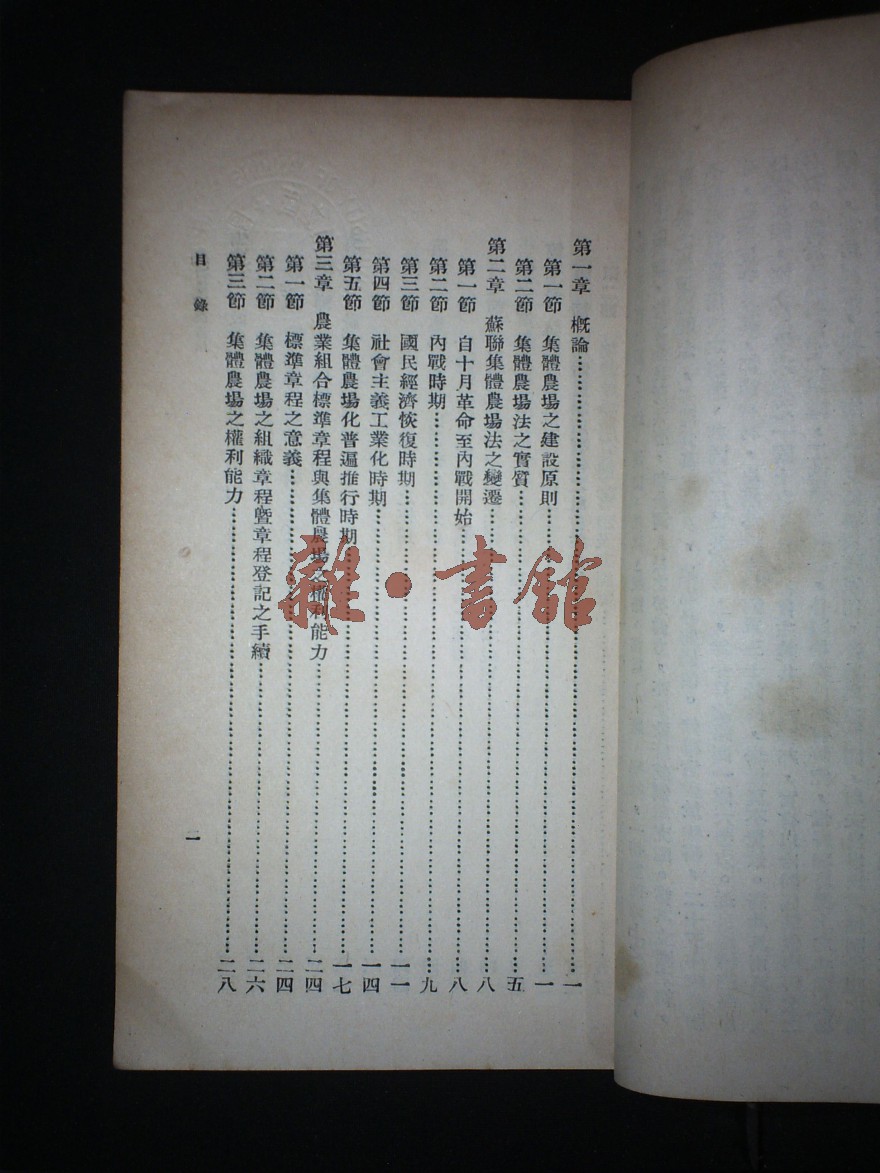 第一章 概論……一
第一節 集體農場之建設原則……一
第二節 集體農場法之實質……五
第二章 蘇聯集體農場法之變遷……八
第一節 自十月革命至內戰開始……八
第二節 內戰時期……九
第三節 國民經濟恢復時期……一一
第四節 社會主義工業化時期……一四
第五節 集體農場化普遍推行時期……一七
第三章 農業組合標準章程與集體農場之權利能力……二四
第一節 標準章程之意義……二四
第二節 集體農場之組織章程暨章程登記之手續……二六
第三節 集體農場之權利能力……二八
目錄
一
雜·書館